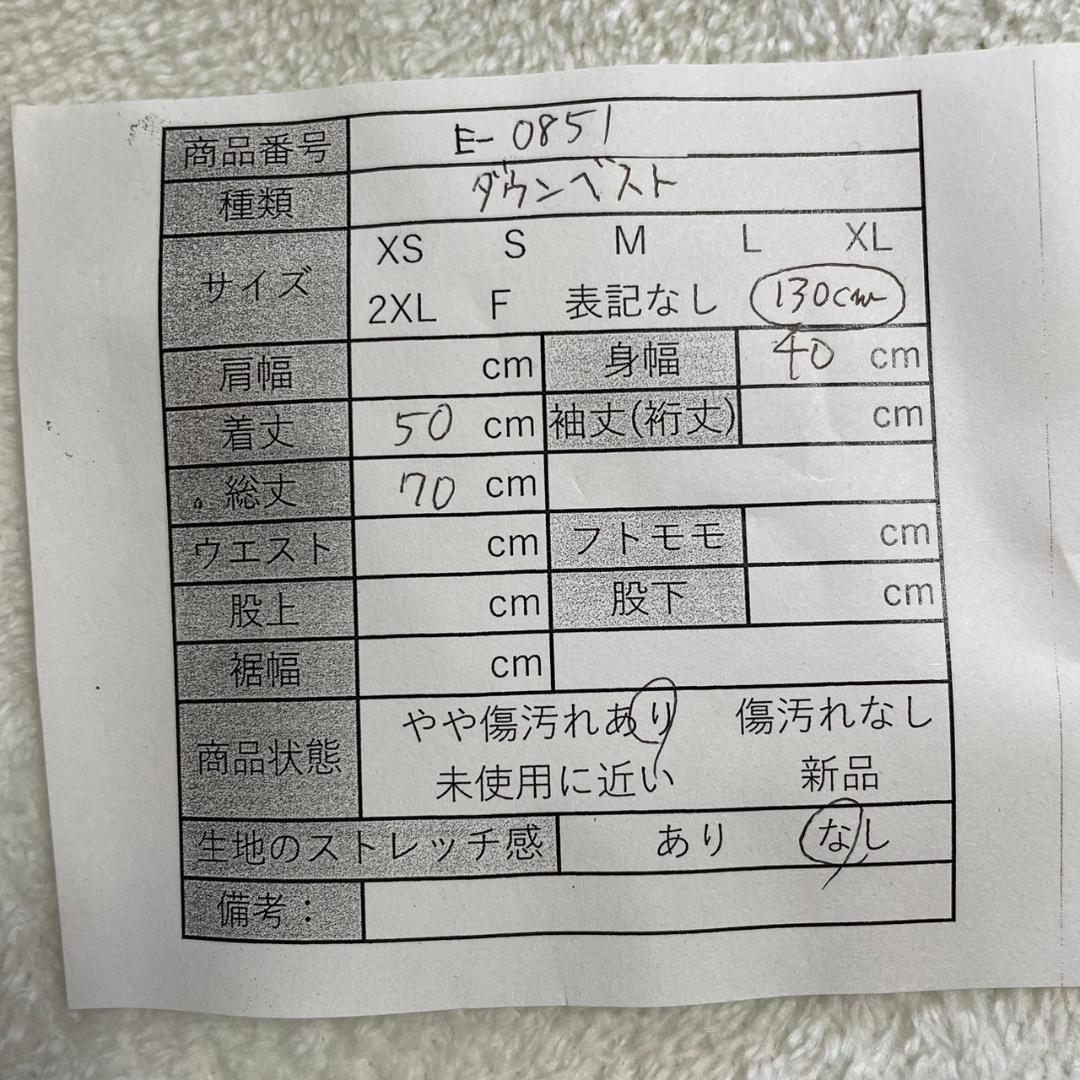 商品番号 E-0851
種類 ダウンベスト
サイズ XS S M L XL
2XL F 表記なし 130cm
肩幅 cm 身幅 40 cm
着丈 50 cm 袖丈(裄丈) cm
総丈 70 cm
ウエスト cm フトモモ cm
股上 cm 股下 cm
裾幅 cm
商品状態 やや傷汚れあり 傷汚れなし
未使用に近い 新品
生地のストレッチ感 あり なし
備考：